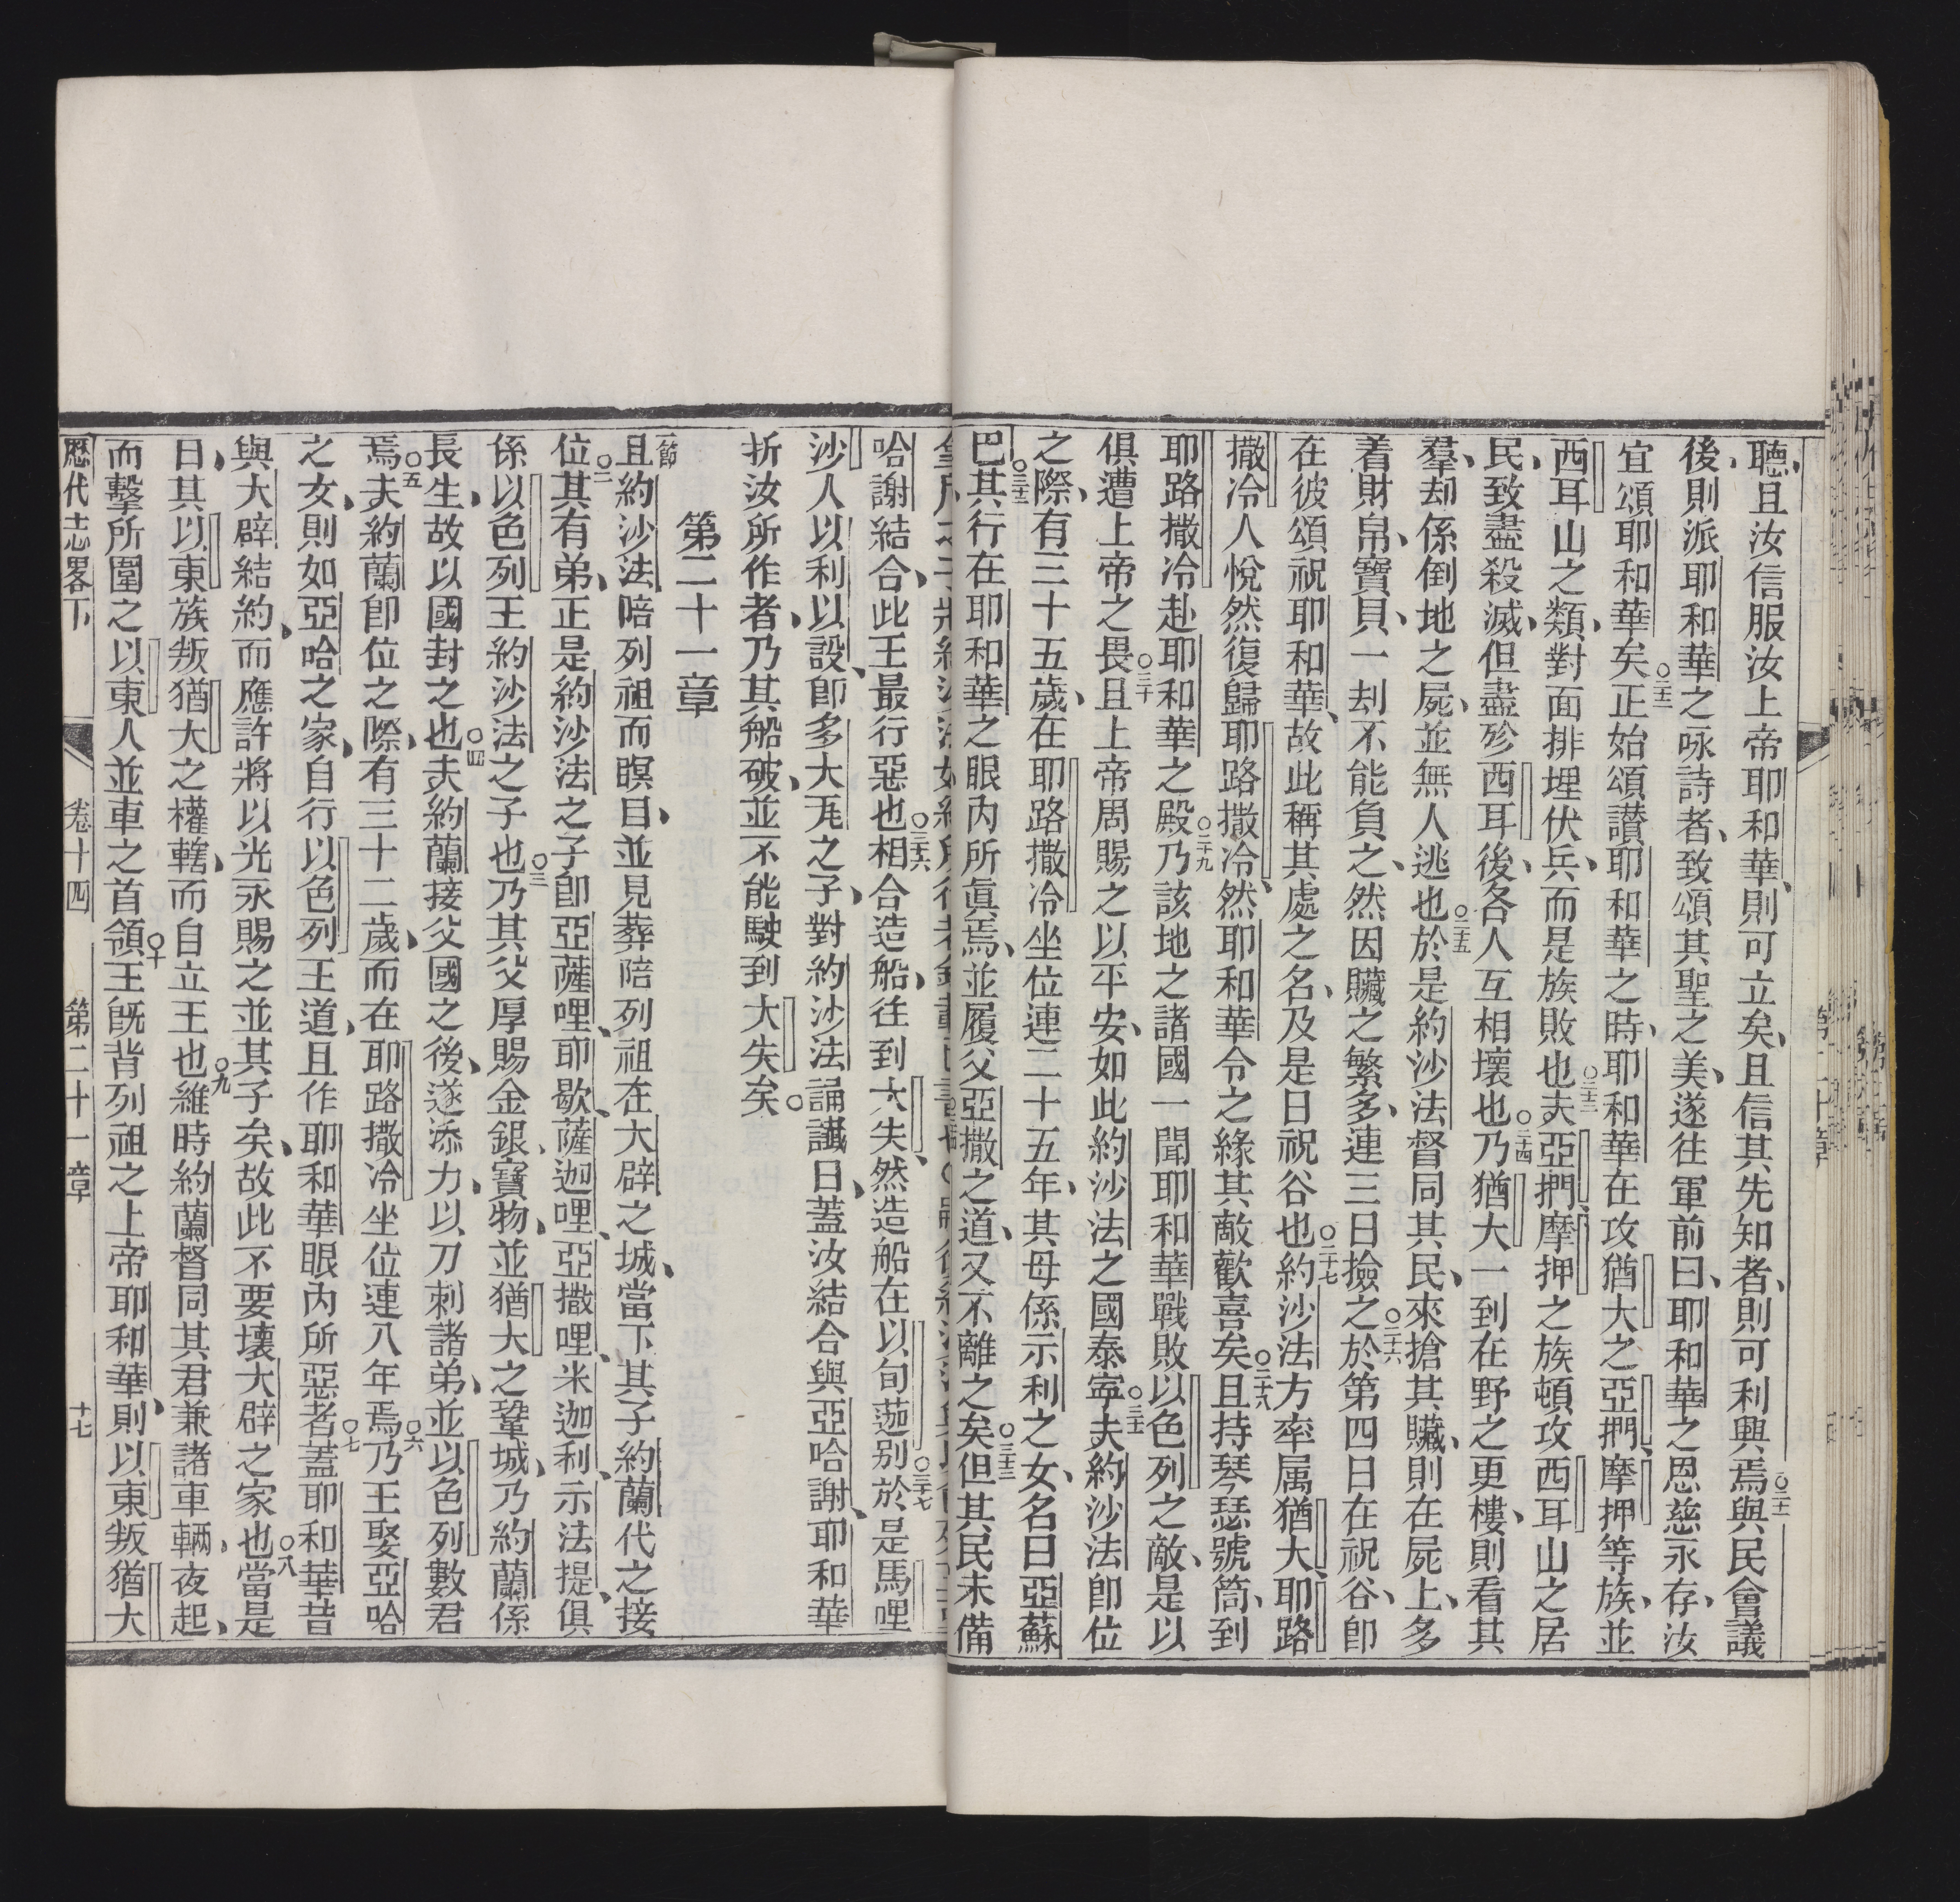 聽、且汝信服汝上帝耶和華、則可立矣、且信其先知者、則可利興焉○二十一與民會議
後、則派耶和華之咏詩者、致頌其聖之美、遂往軍前曰、耶和華之恩慈永存、汝
宜頌耶和華矣○二十二正始頌讃耶和華之時、耶和華在攻猶大之亞捫、摩押等族、並
西耳山之類、對面排埋伏兵、而是族敗也○二十三夫亞捫摩押之族頓攻西耳山之居
民、致盡殺滅、但盡殄西耳後、各人互相壞也○二十四乃猶大一到在野之更樓、則看其
羣、却係倒地之屍、並無人逃也○二十五於是約沙法督同其民、來搶其贜、則在屍上、多
着財帛、寶貝、一刦不能負之、然因贜之繁多、連三日撿之○二十六於第四日在祝谷、即
在彼頌祝耶和華、故此稱其處之名、及是日祝谷也○二十七約沙法方率属猶大、耶路
撒冷人悅然復歸耶路撒冷、然耶和華令之緣其敵歡喜矣○二十八且持琴瑟號筒、到
耶路撒冷赴耶和華之殿○二十九乃該地之諸國一聞耶和華戰敗以色列之敵、是以
俱遭上帝之畏○三十且上帝周賜之以平安、如此約沙法之國泰寧○三十一夫約沙法即位
之際、有三十五歲、在耶路撒冷坐位連二十五年、其母係示利之女、名曰亞蘇
巴○三十二其行在耶和華之眼內所眞焉、並履父亞撒之道、又不離之矣○三十三但其民未備
哈謝結合、此王最行惡也○三十六相合造船、往到大失、然造船在以旬葩别○三十七於是馬哩
沙人以利以設、即多大瓦之子、對約沙法誦讖曰、蓋汝結合與亞哈謝、耶和華
折汝所作者、乃其船破、並不能駛到大失矣○
第二十一章
節且約沙法陪列祖而瞑目、並見葬陪列祖在大辟之城、當下其子約蘭代之接
位○二其有弟、正是約沙法之子、即亞薩哩、耶歇、薩迦哩、亞撒哩、米迦利、示法提、俱
係以色列王約沙法之子也○三乃其父厚賜金銀、寶物、並猶大之鞏城、乃約蘭係
長生、故以國封之也○四夫約蘭接父國之後、遂添力、以刀刺諸弟、並以色列數君
焉○五夫約蘭即位之際、有三十二歲、而在耶路撒冷坐位連八年焉○六乃王娶亞哈
之女、則如亞哈之家、自行以色列王道、且作耶和華眼內所惡者○七蓋耶和華昔
與大辟結約、而應許將以光永賜之並其子矣、故此不要壞大辟之家也○八當是
日、其以東族叛猶大之權轄、而自立王也○九維時約蘭督同其君兼諸車輛、夜起、
而擊所圍之以東人並車之首領○十王既背列祖之上帝耶和華、則以東叛猶大
歷代志畧下　卷十四　第二十一章　十七